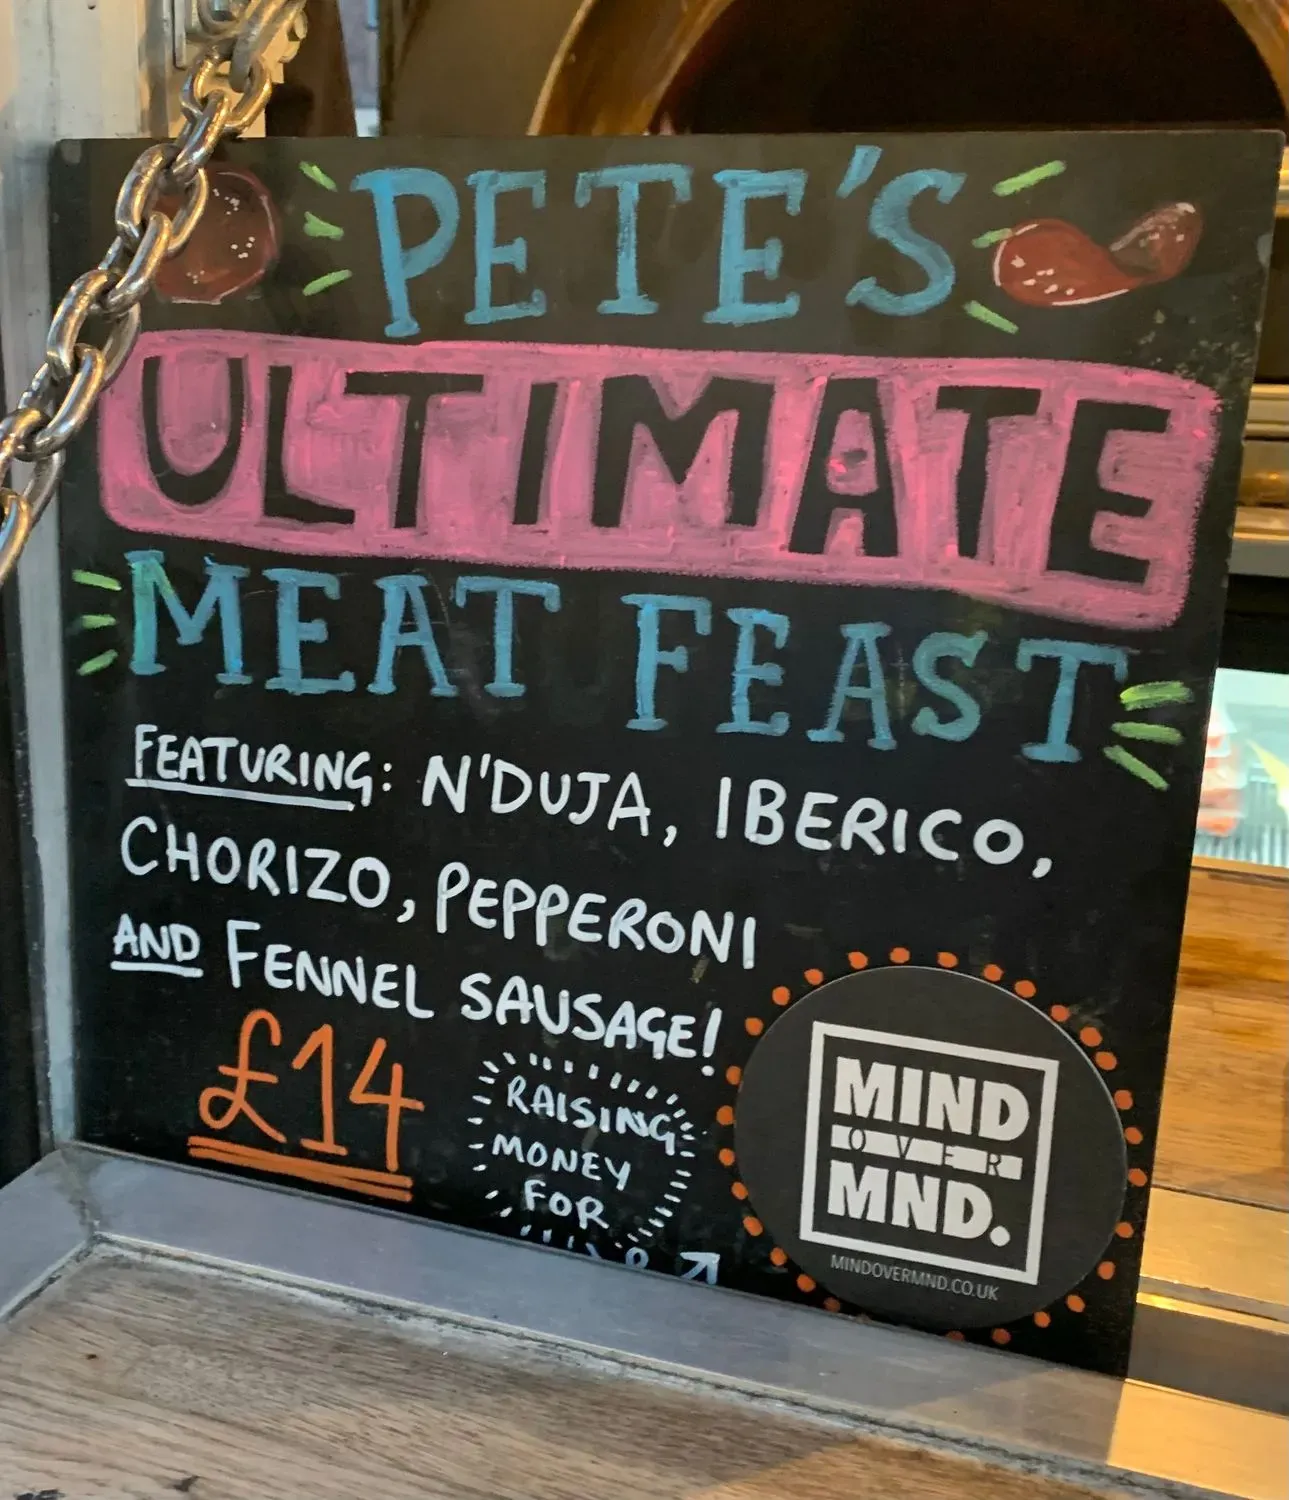 PETE'S
ULTIMATE
MEAT FEAST
FEATURING: N'DUJA, IBERICO,
CHORIZO, PEPPERONI
AND FENNEL SAUSAGE!
£14
RAISING
MONEY
FOR
MIND
OVER
MND.
MINDOVERMND.CO.UK